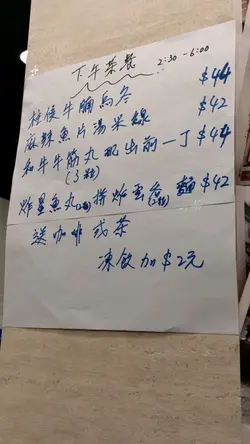 下午茶餐 2:30 - 6:00
柱侯牛腩烏冬 $44
麻辣魚片湯米線 $42
牛牛筋丸 出前一丁 $44
(3粒)
炸墨魚丸 拼炸雲吞 麵 $42
送咖啡或茶
凍飲加$2元